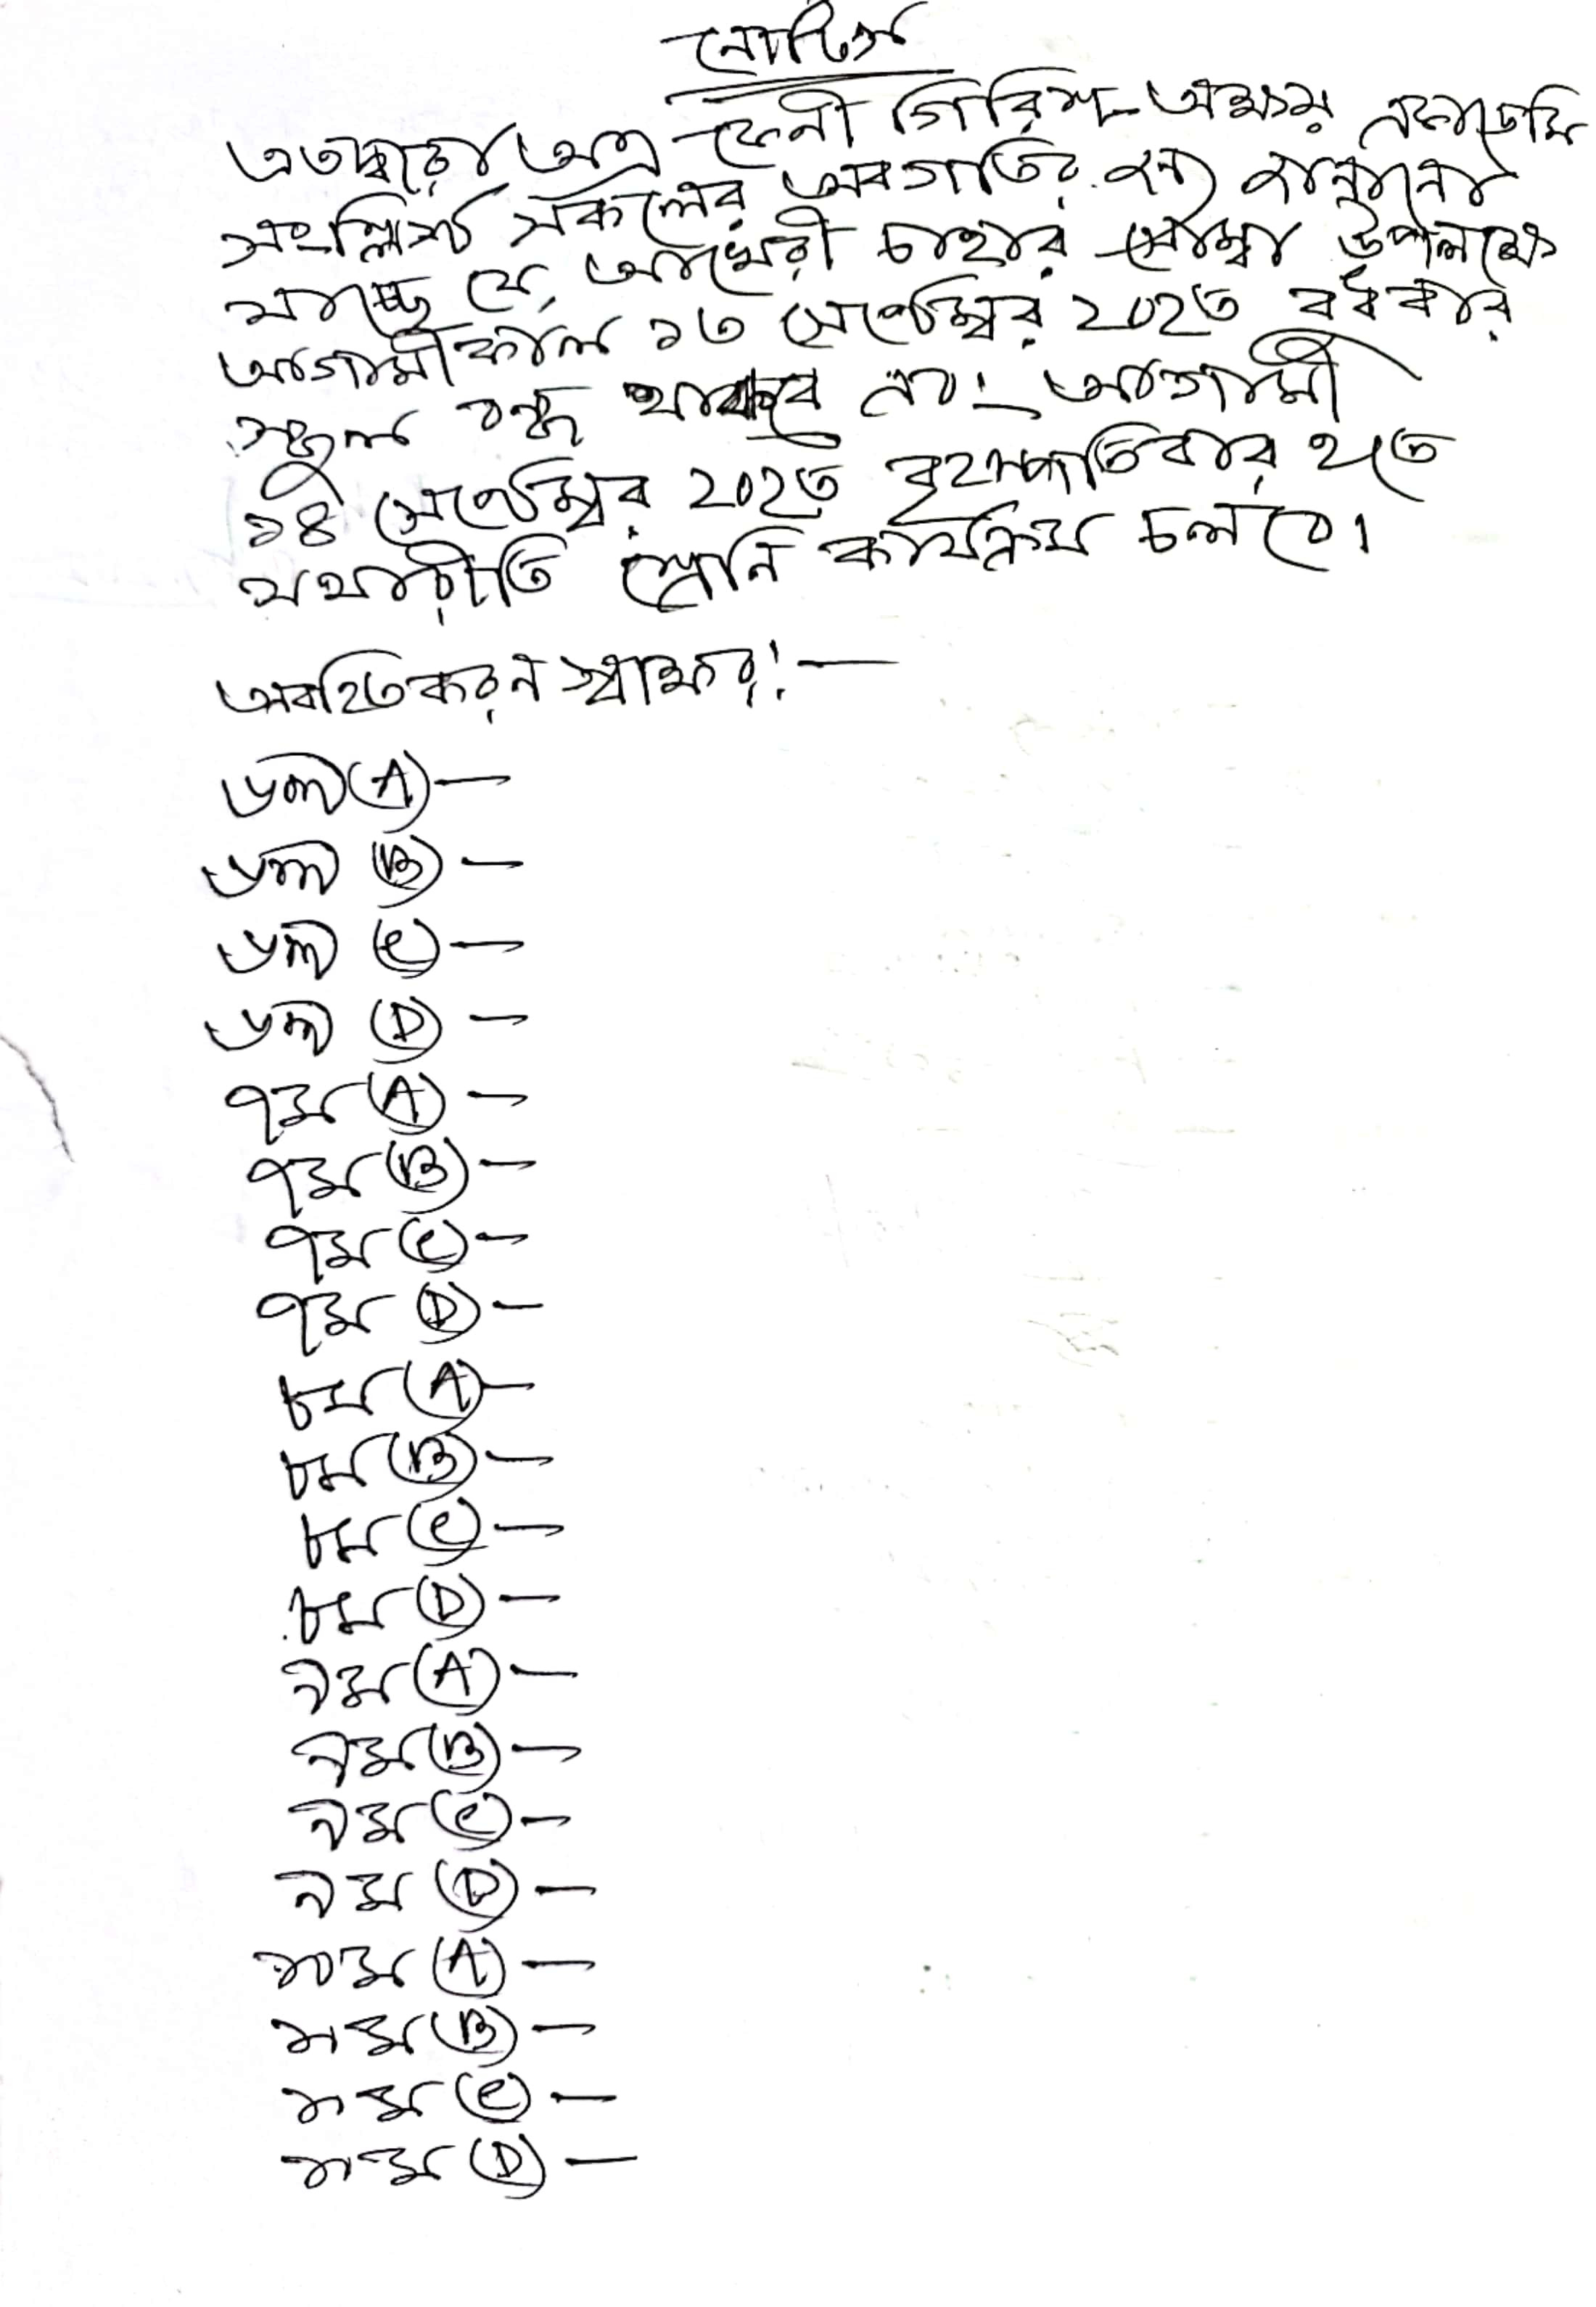 নোটিস
এতদ্বারা অত্র ফেনী গিরিশ-অক্ষয় একাডেমি
সংশ্লিস্ট সকলের অবগতির জন্য জানানো
যাচ্ছে যে, আখেরী চাহার সোম্বা উপলক্ষে
আগামীকাল ১৩ সেপ্টেম্বর ২০২৩ বুধবার
স্কুল বন্ধ থাকবে। আগামী
১৪ সেপ্টেম্বর ২০২৩ বৃহস্পতিবার হতে
যথারীতি শ্রেনি কার্যক্রম চলবে।
অবহিতকরন স্বাক্ষর:—
৬ষ্ঠ (A) —
৬ষ্ঠ (B) —
৬ষ্ঠ (C) —
৬ষ্ঠ (D) —
৭ম (A) —
৭ম (B) —
৭ম (C) —
৭ম (D) —
৮ম (A) —
৮ম (B) —
৮ম (C) —
৮ম (D) —
৯ম (A) —
৯ম (B) —
৯ম (C) —
৯ম (D) —
১০ম (A) —
১০ম (B) —
১০ম (C) —
১০ম (D) —